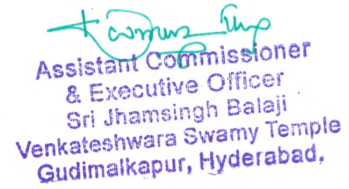 Assistant Commissioner
& Executive Officer
Sri Jhamsingh Balaji
Venkateshwara Swamy Temple
Gudimalkapur, Hyderabad.